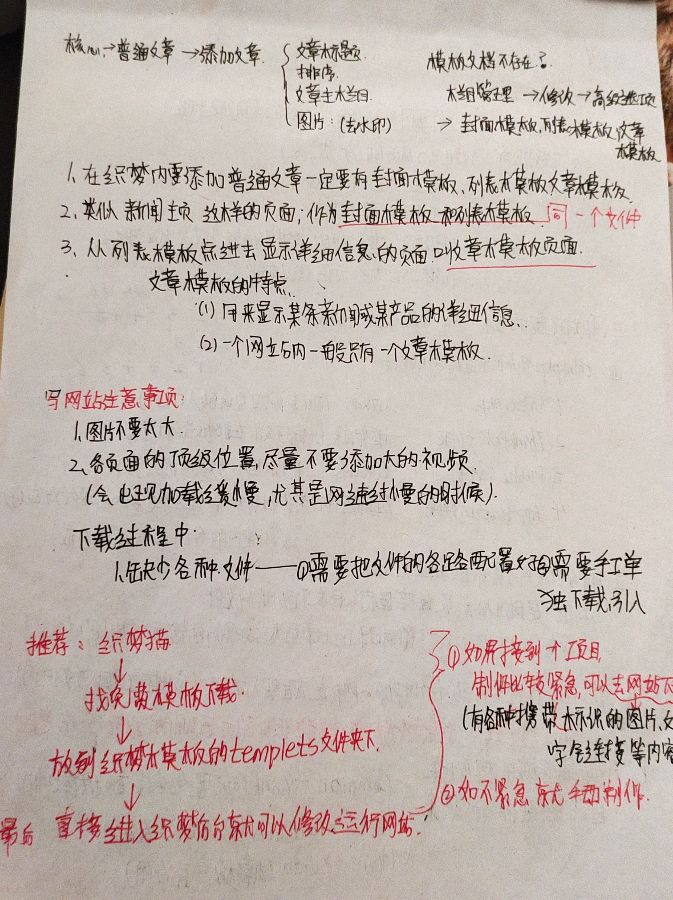 核心→普通文章→添加文章
文章标题
排序
文章主栏目
图片:(去水印)
模板文档不存在?
栏目管理→修改→高级选项
→封面模板,列表模板,文章
模板
1、在织梦内要添加普通文章一定要有封面模板、列表模板文章模板
2、类似新闻主页这样的页面;作为封面模板和列表模板同一个文件
3、从列表模板点进去显示详细信息的页面叫文章模板页面.
文章模板的特点.
(1)用来显示某条新闻或某产品的详细信息、
(2)一个网站内一般只有一个文章模板.
写网站注意事项:
1.图片不要太大
2、各页面的顶级位置,尽量不要添加大的视频.
(会出现加载缓慢,尤其是网速过慢的时候).
下载过程中
1.缺少各种文件——①需要把文件的各路配置好②需要手工单
独下载,引入
推荐:织梦猫
↓
找免费模板下载
↓
放到织梦模板的templets文件夹下
↓
最后 直接进入织梦后台就可以修改运行网站.
①如果接到个项目,
制作比较紧急,可以去网站下
(有各种携带标识的图片,文
字链接等内容
②如不紧急就手动制作.